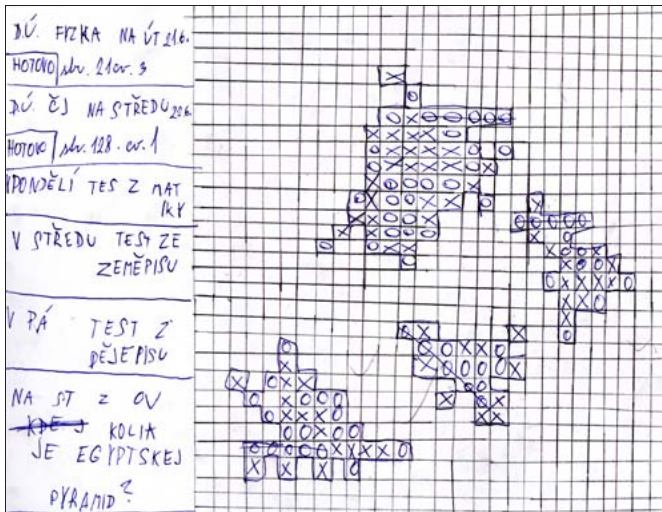 D.Ú. FYZKA NA ÚT 21.6.
HOTOVO str. 21 cv. 3
D.Ú. ČJ NA STŘEDU 22.6.
HOTOVO str. 128 - cv. 1
V PONDĚLÍ TES Z MAT
IKY
V STŘEDU TEST ZE
ZEMĚPISU
V PÁ TEST Z
DĚJEPISU
NA ST Z OV
KDE J KOLIK
JE EGYPTSKEJ
PYRAMID?